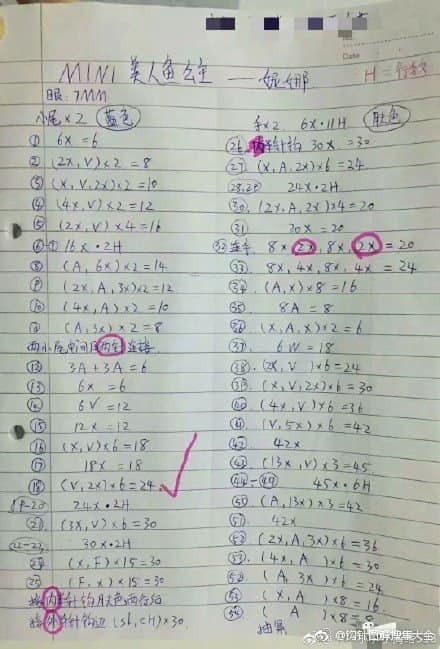 Date
H=行数
MINI 美人鱼公主——妮娜
眼:7MM
小尾×2 蓝色
① 6X=6
② (2X,V)×2=8
③ (X,V,2X)×2=10
④ (4X,V)×2=12
⑤ (2X,V)×4=16
⑥-⑦ 16X·2H
⑧ (A,6X)×2=14
⑨ (2X,A,3X)×2=12
⑩ (4X,A)×2=10
⑪ (A,3X)×2=8
两小尾中间用两针连接
⑫ 3A+3A=6
⑬ 6X=6
⑭ 6V=12
⑮ 12X=12
⑯ (X,V)×6=18
⑰ 18X=18
⑱ (V,2X)×6=24
19-20 24X·2H
㉑ (3X,V)×6=30
㉒-㉓ 30X·2H
㉔ (X,F)×15=30
㉕ (F,X)×15=30
挑内半针钩肤色两行后
挑外半针钩边(sl,cH)×30
手×2 6X·11H 肤色
㉖ 内半针钩 30X=30
㉗ (X,A,2X)×6=24
㉘,㉙ 24X·2H
㉚ (2X,A,2X)×4=20
㉛ 20X=20
㉜ 连手 8X,2X,8X,2X=20
㉝ 8X,4X,8X,4X=24
㉞ (A,X)×8=16
㉟ 8A=8
㊱ (X,A,X)×2=6
㊲ 6W=18
㊳ (2X,V)×6=24
㊴ (X,V,2X)×6=30
㊵ (4X,V)×6=36
㊶ (V,5X)×6=42
㊷ 42X
㊸ (13X,V)×3=45
㊹-㊾ 45X·6H
㊿ (A,13X)×3=42
51 42X
52 (2X,A,3X)×6=36
53 (4X,A)×6=30
54 (A,3X)×6=24
55 (X,A)×8=16
56 (A)×8=8
抽紧
@钩针图解搜集大全